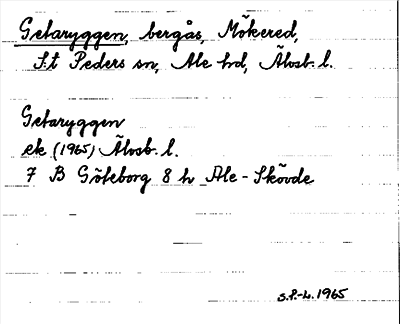 Getaryggen, bergås, Mökered,
S:t Peders sn, Ale hd, Älvsb. l.
Getaryggen
ek (1965) Älvsb. l.
7 B Göteborg 8 h Ale-Skövde
S.P.-L. 1965